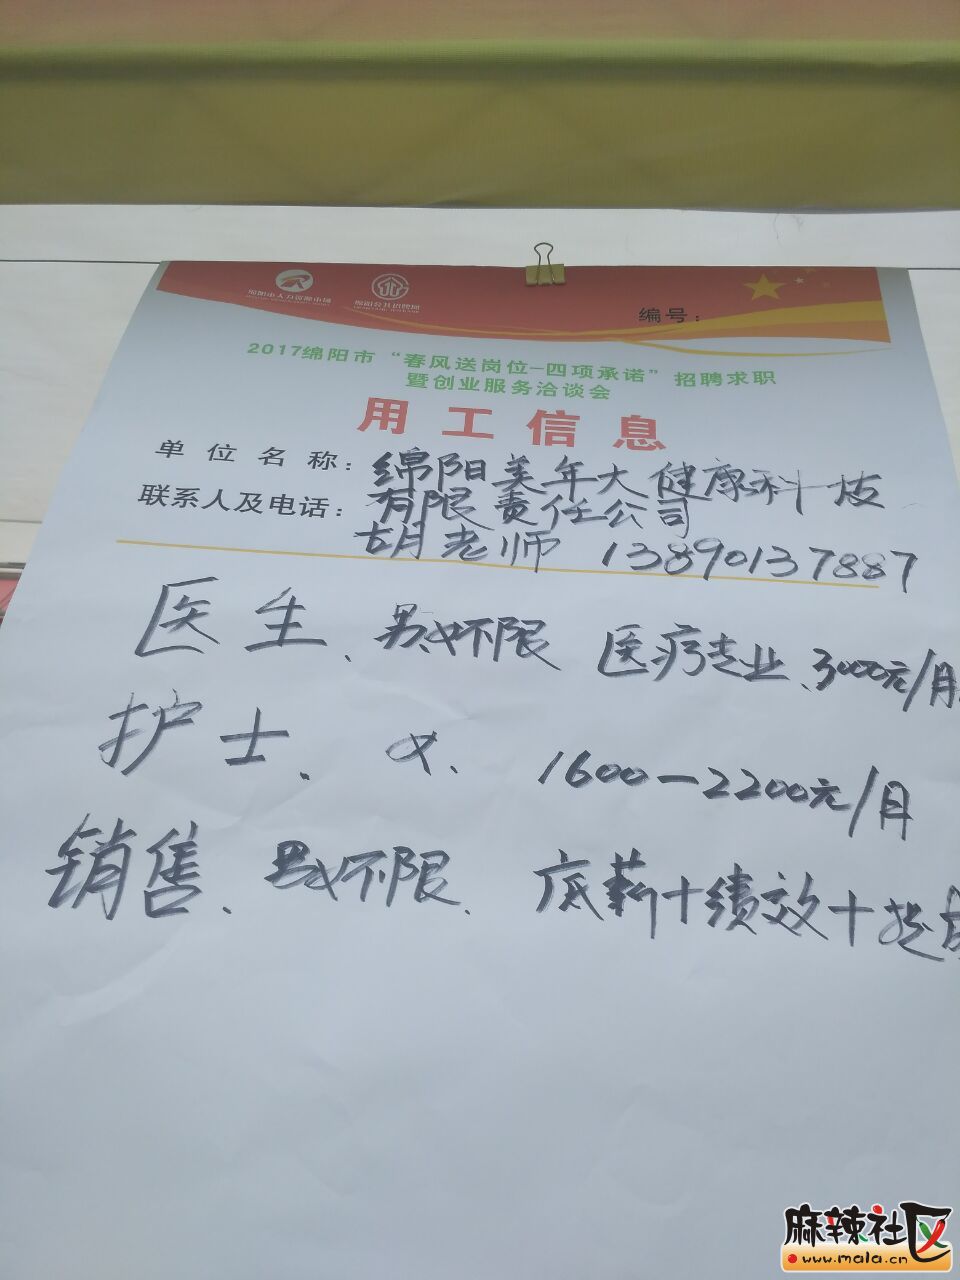 绵阳市人力资源市场
绵阳公共招聘网
编号：
2017绵阳市“春风送岗位-四项承诺”招聘求职
暨创业服务洽谈会
用工信息
单位名称：绵阳美年大健康科技
有限责任公司
联系人及电话：胡老师 13890137887
医生、男女不限 医疗专业、3000元/月
护士、女、1600-2200元/月
销售、男女不限、底薪+绩效+提成
麻辣社区
www.mala.cn